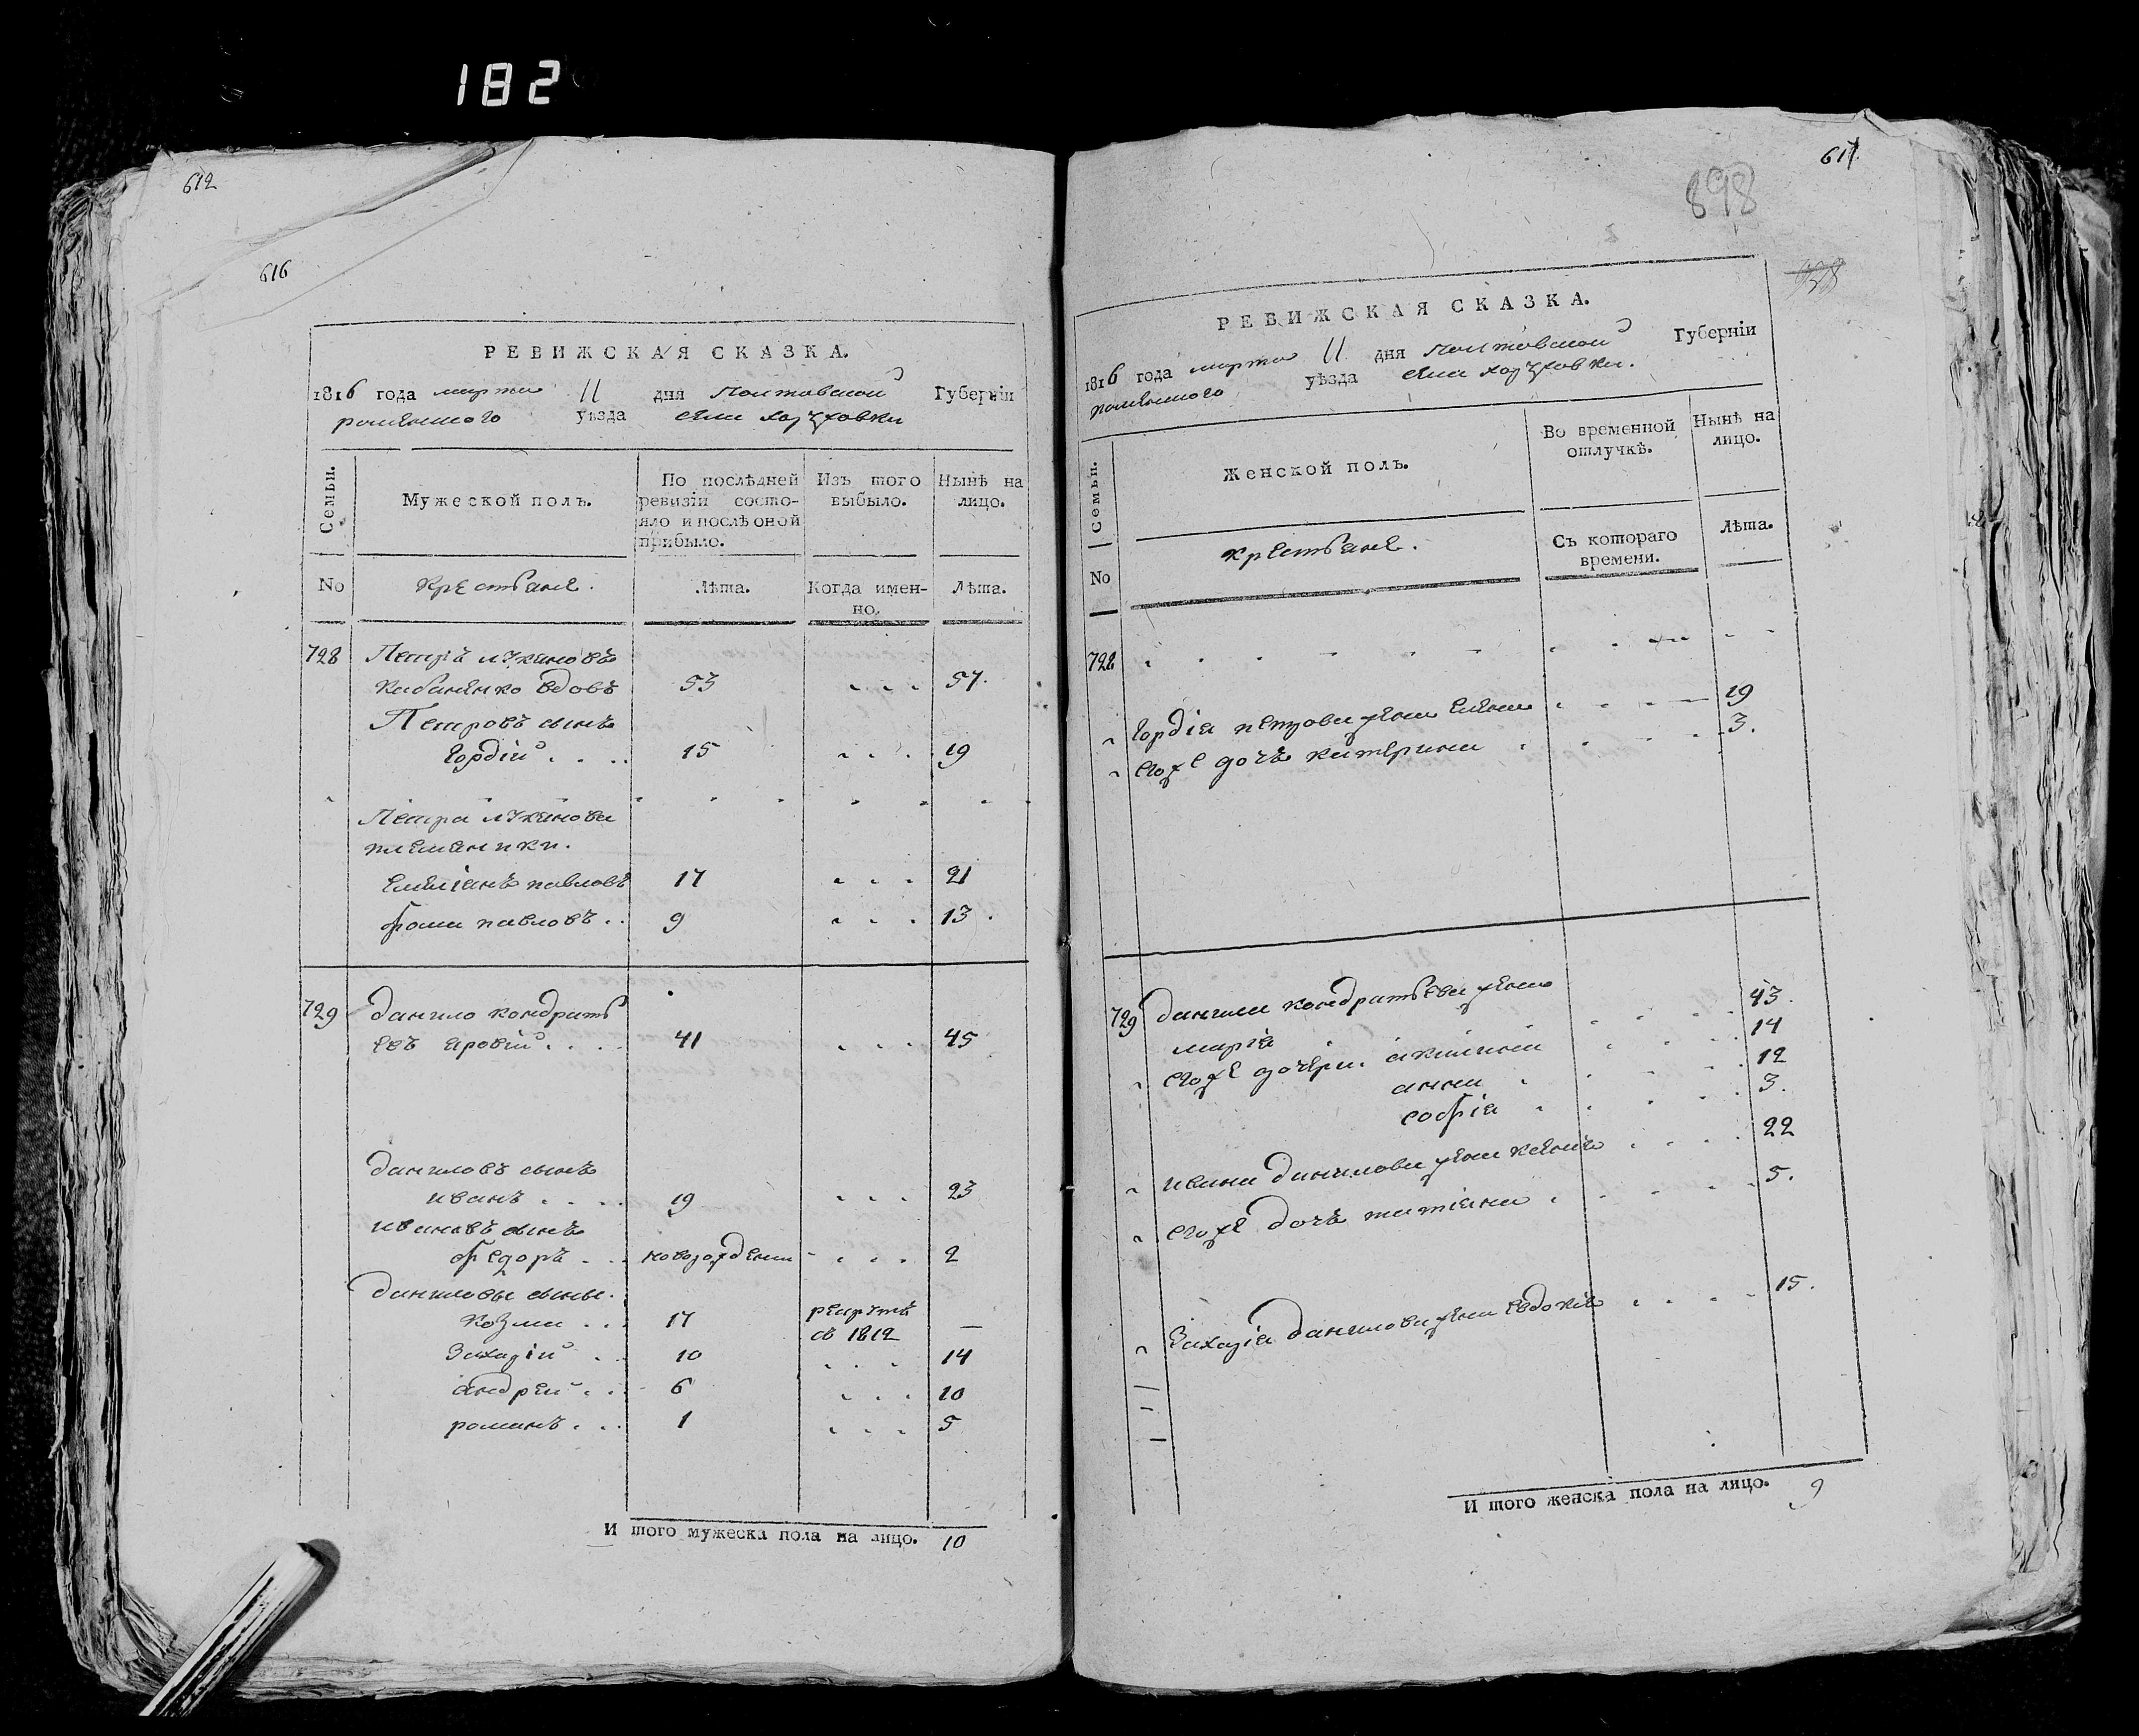 182
612
616
РЕВИЖСКАЯ СКАЗКА.
1816 года марта 11 дня Полтавской Губернiи
роменского уѣзда села
Семьи.
Мужеской полъ.
По послѣдней ревизiи состояло и послѣ оной прибыло.
Изъ того выбыло.
Нынѣ на лицо.
No
Крестьяне.
Лѣта.
Когда именно.
Лѣта.
728 Петръ Лукяновъ
кабаненко вдовъ 53 57.
Петровъ сынъ
Гордiй 15 19
Петра Лукянова
племеники.
Емелiянъ павловъ 17 21
Фома павловъ 9 13.
729 данило кондрать
евъ яровiй 41 45
даниловъ сынъ
иванъ 19 23
ивановъ сынъ
Федоръ новорожденъ 2
даниловы сыны.
Козма 17 рекрутъ
съ 1812 —
Захарiй 10 14
андрей 6 10
романъ 1 5
И того мужеска пола на лицо. 10
617
898
РЕВИЖСКАЯ СКАЗКА.
1816 года марта 11 дня Полтавской Губернiи
роменского уѣзда села
Семьи.
Женской полъ.
Во временной отлучкѣ.
Нынѣ на лицо.
No
крестьяне.
Съ котораго времени.
Лѣта.
728
Гордiя петрова жена елена 19
егоже дочь катерина 3.
729 данила кондратьева жена
марiя 43.
егоже дочери. акилина 14
анна 12
софiя 3.
ивана данилова жена 22
егоже дочь татiяна 5.
Захарiя данилова жена евдокiя 15.
И того женска пола на лицо. 9